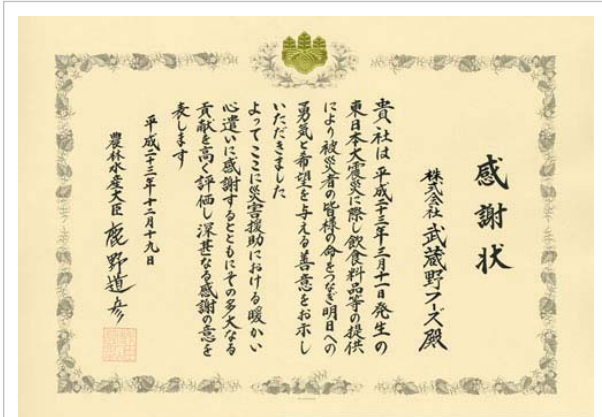 感謝状
株式会社 武蔵野フーズ殿
貴社は平成二十三年三月十一日発生の
東日本大震災に際し飲食料品等の提供
により被災者の皆様の命をつなぎ明日への
勇気と希望を与える善意をお示し
いただきました
よってここに災害援助における暖かい
心遣いに感謝するとともにその多大なる
貢献を高く評価し深甚なる感謝の意を
表します
平成二十三年十二月十九日
農林水産大臣 鹿野道彦